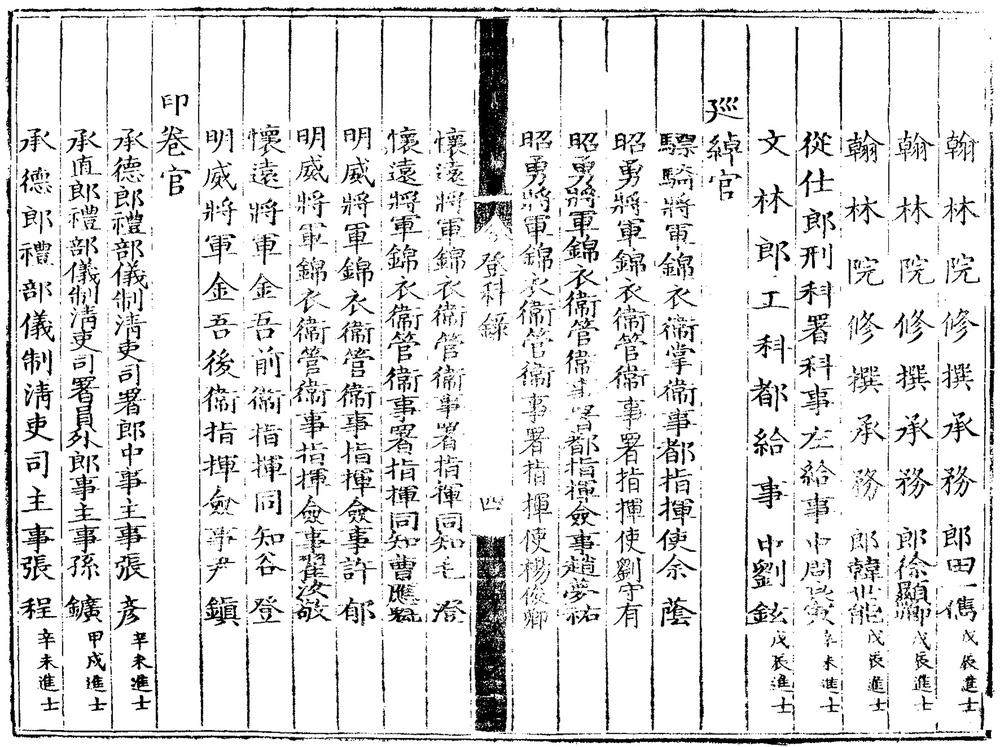 翰林院修撰承務郎田一儁戊辰進士
翰林院修撰承務郎徐顯卿戊辰進士
翰林院修撰承務郎韓世能戊辰進士
從仕郎刑科署科事左給事中周良寅辛未進士
文林郎工科都給事中劉鉉戊辰進士
廵綽官
驃騎將軍錦衣衞掌衞事都指揮使余蔭
昭勇將軍錦衣衞管衞事署指揮使劉守有
昭勇將軍錦衣衞管衞事署都指揮僉事趙夢祐
昭勇將軍錦衣衞管衞事署指揮使楊俊卿
登科錄
四
懷遠將軍錦衣衞管衞事署指揮同知毛澄
懷遠將軍錦衣衞管衞事署指揮同知曹應
明威將軍錦衣衞管衞事指揮僉事許郁
明威將軍錦衣衞管衞事指揮僉事翟汝敬
懷遠將軍金吾前衞指揮同知谷登
明威將軍金吾後衞指揮僉事尹鎭
印卷官
承德郎禮部儀制淸吏司署郎中事主事張彥辛未進士
承直郎禮部儀制淸吏司署員外郎事主事孫鑛甲戌進士
承德郎禮部儀制淸吏司主事張程辛未進士